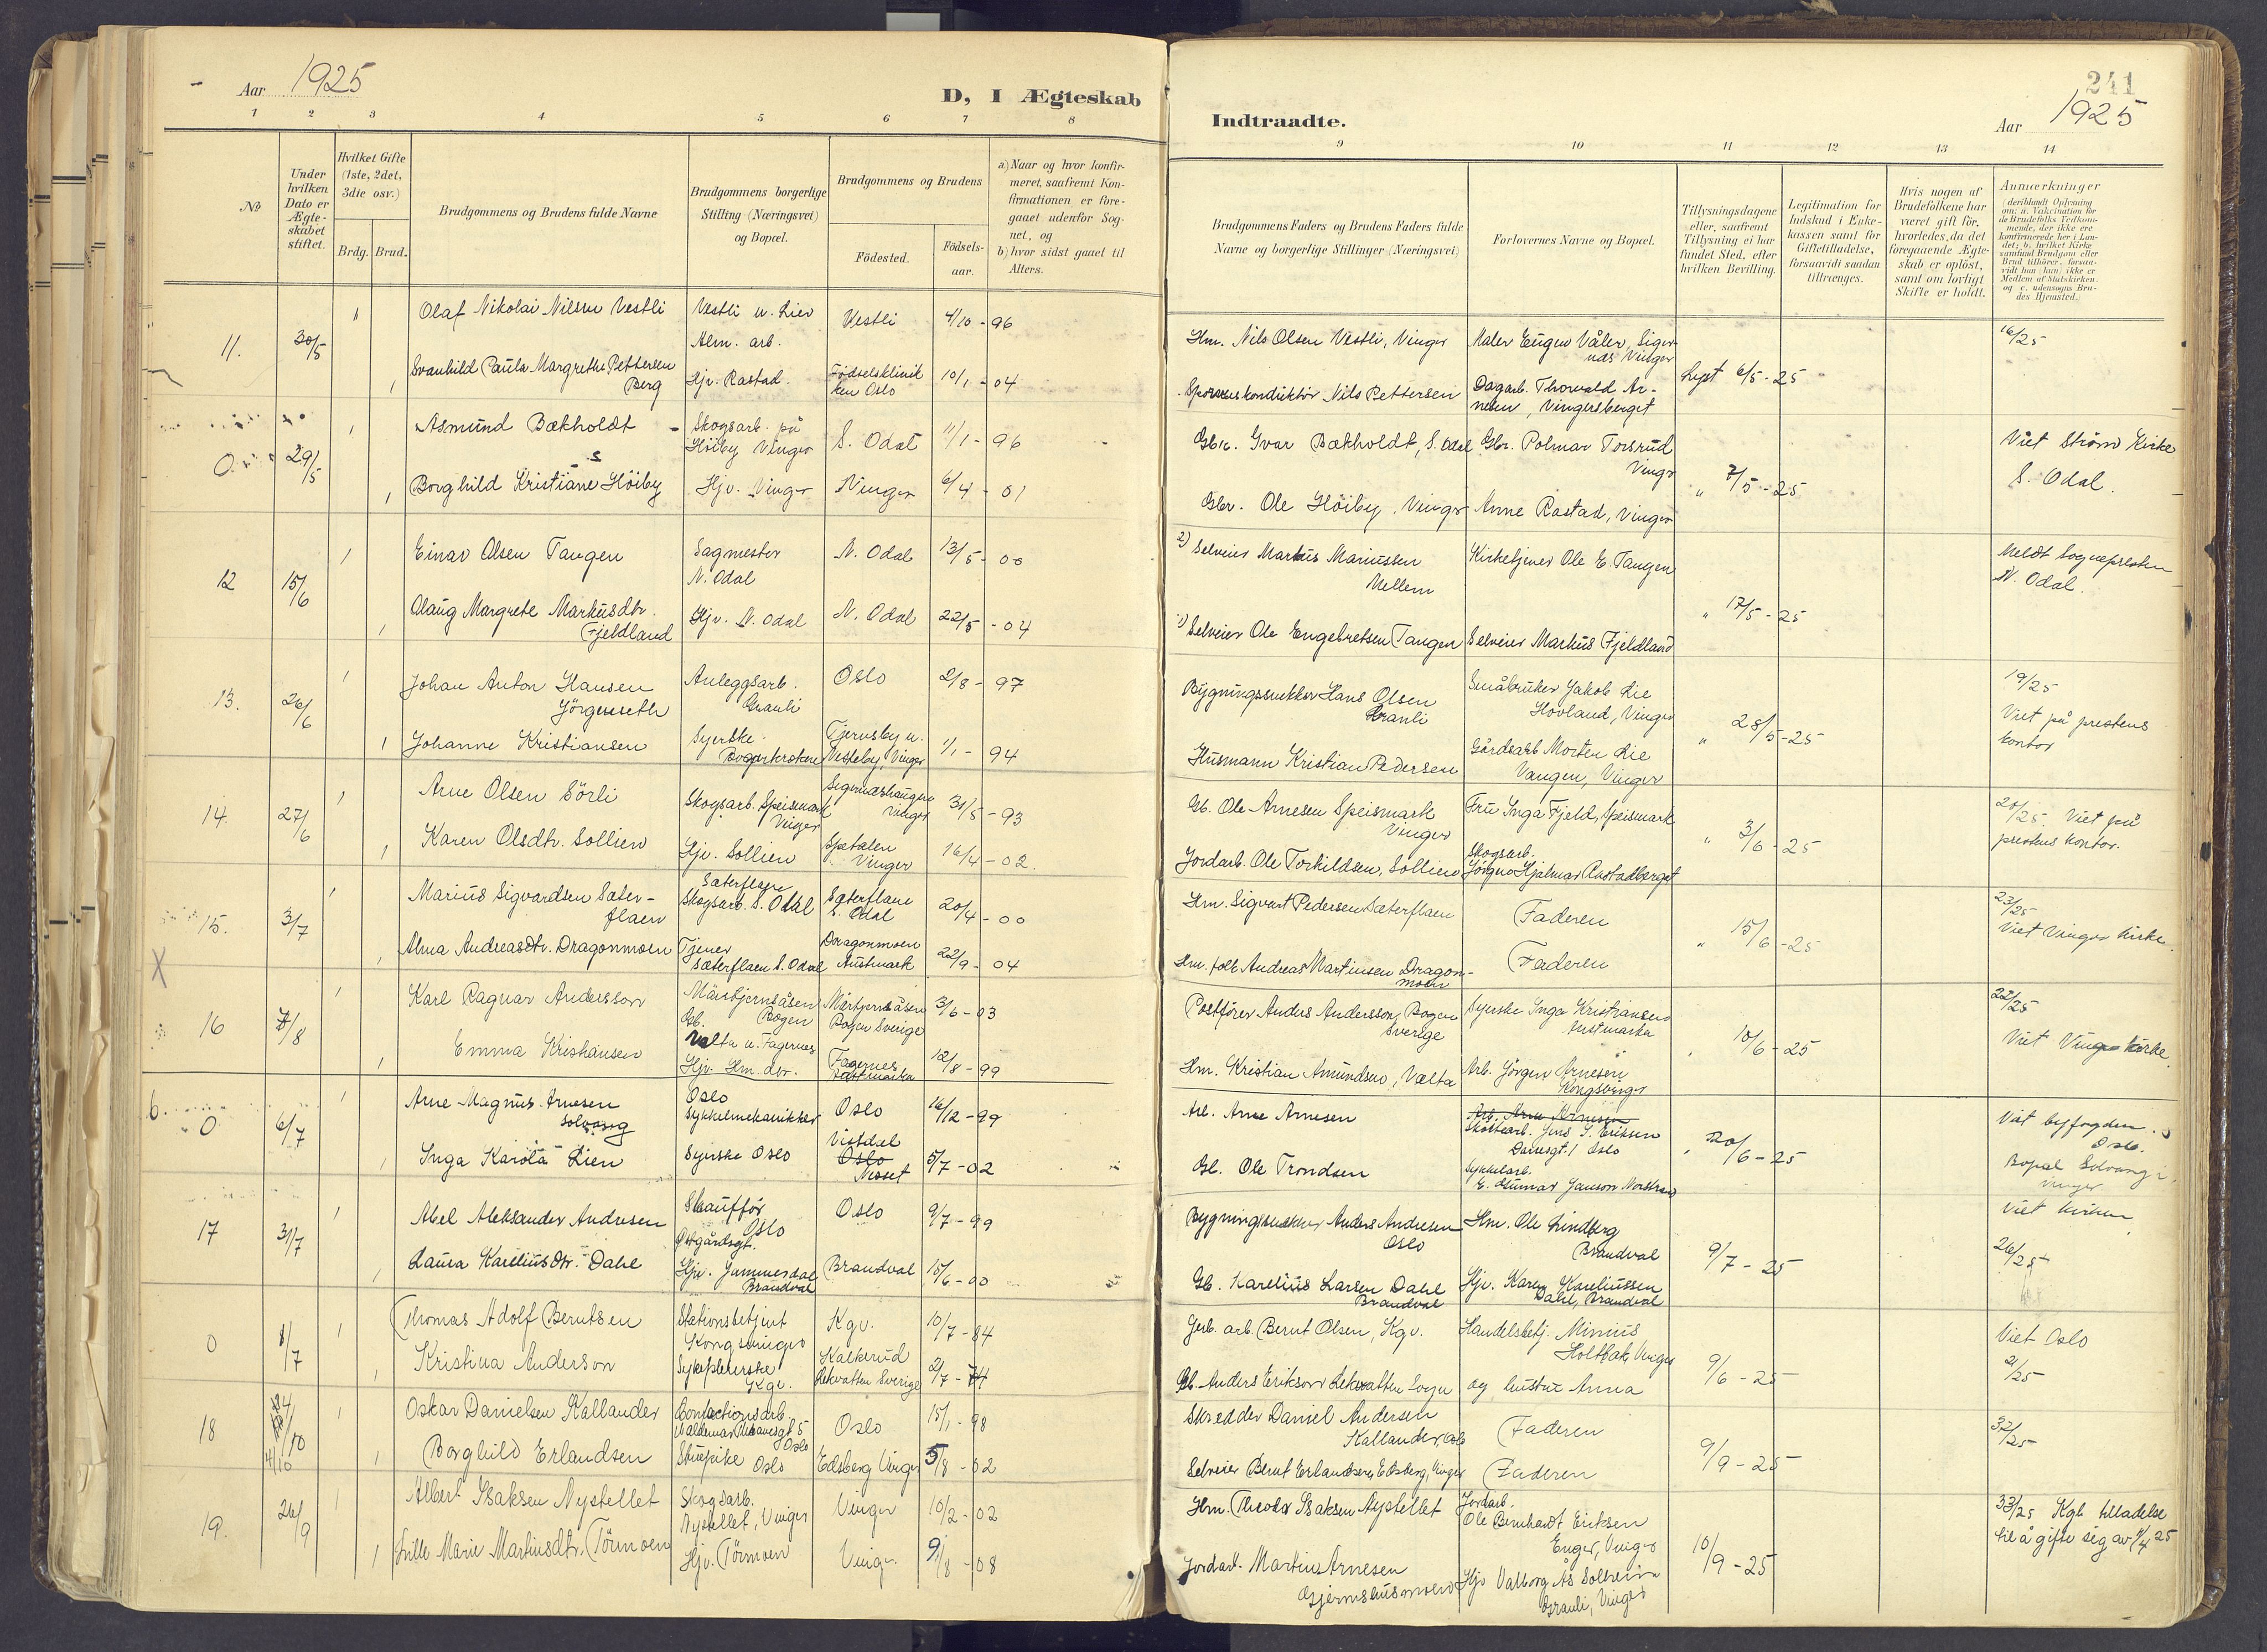 Aar 1925
D, I Ægteskab
1 2 3 4 5 6 7 8
No
Under hvilken Dato er Ægteskabet stiftet.
Hvilket Gifte (1ste, 2det, 3die osv.)
Brdg. Brud.
Brudgommens og Brudens fulde Navne
Brudgommens borgerlige Stilling (Næringsvei) og Bopæl.
Brudgommens og Brudens
Födested.
Födsels-aar.
a) Naar og hvor konfir-
meret, saafremt Kon-
firmationen er fore-
gaaet udenfor Sog-
net, og
b) hvor sidst gaaet til
Alters.
11. 30/5
1 Olaf Nikolai Nilsen Vestli
Vestli u. Lier
Alm. arb.
Vestli
4/10 - 96
1 Svanhild Paula Margrethe Pettersen
Berg
Hjv. Rastad.
Födselsklinik
ken Oslo
10/1 - 04
0 29/5
1 Asmund Bækholdt
Skogsarb. på
Höiby Vinger
S. Odal
11/1 - 96
1 Borghild Kristiane Höiby
Hjv. Vinger
Vinger
6/4 - 01
12 15/6
1 Einar Olsen Tangen
Sagmester
N. Odal
N. Odal
13/5 - 00
1 Olaug Margrete Markusdtr.
Fjeldland
Hjv. N. Odal
N. Odal
22/5 - 04
13. 26/6
1 Johan Anton Hansen
Jörgenseth
Anleggsarb.
Granli
Oslo
2/8 - 97
1 Johanne Kristiansen
Syerske
Tjernsby u.
Vesteby, Vinger
1/1 - 94
14. 27/6
1 Arne Olsen Sörli
Skogsarb. Speismark
Vinger
Sigernæshaugen
Vinger
31/5 - 93
1 Karen Olsdtr. Sollien
Hjv. Sollien
Spetalen
Vinger
16/4 - 02.
15. 3/7
1 Marius Sigvardsen Sæter-
flaen
Sæterflaen
Skogsarb. S. Odal
Sæterflaen
S. Odal
20/4 - 00
1 Alma Andreasdtr. Dragonmoen
Tjener
Sæterflaen S. Odal
Dragonmoen
Austmark
22/9 - 04
X
16 7/8
1 Karl Ragnar Andersson
Gb. Bogen
Bogen Sverige
3/6 - 03
1 Emma Kristiansen
Valta u. Fagernes
Hjv. Hm. dtr.
Fagernes
Austmarka
12/8 - 99
0 6/7
1 Arne Magnus Arnesen
Solvang
Oslo
Sykkelmekaniker
Oslo
16/12 - 99
1 Inga Karola Lien
Syerske Oslo
Vistdal
Oslo
Nesset
5/7 - 02
17 31/7
1 Abel Aleksander Andresen
Skaufför
Oslo
Østgårdsgt.
Oslo
9/7 - 99
1 Laura Kareliusdtr. Dahl
Hjv. Jammerdal
Brandval
Brandval
15/6 - 00
0 1/7
1 Thomas Adolf Berntsen
Stationsbetjent
Kongsvinger
Kgv.
10/7 - 84
1 Kristina Anderson
Sykepleierske
Kgv.
Kalkerud
Lekvatten Sverige
2/7 - 74
18 4/10
1 Oskar Danielsen Kallander
Confectionsarb.
Valdemar Thranesgt 5
Oslo
Oslo
15/1 - 98
1 Borghild Erlandsen
Stuepike Oslo
Edsberg Vinger
5/8 - 02
19. 26/9
1 Albert Isaksen Nystellet
Skogsarb.
Nystellet, Vinger
Vinger
10/2 - 02
1 Lille Marie Martinsdtr. Törmoen
Hjv. Törmoen
Vinger
9/8 - 08
Indtraadte.
241
Aar 1925
9 10 11 12 13 14
Brudgommens Faders og Brudens Faders fulde
Navne og borgerlige Stillinger (Næringsvei)
Forlovernes Navne og Bopæl.
Tillysningsdagene eller, saafremt Tillysning ei har fundet Sted, efter hvilken Bevilling.
Legitimation for Indskud i Enkekassen samt for Giftetilladelse, forsaavidt saadan tiltrænges.
Hvis nogen af Brudefolkene har været gift før, hvorledes da det foregaaende Ægteskab er oplöst, samt om lovligt Skifte er holdt.
Anmærkninger
(deriblandt Oplysning om: a. Vakcination for de Brudefolks Vedkommende, der ikke ere konfirmerede her i Landet; b. hvilket Kirkesamfund Brudgom eller Brud tilhörer, forsaavidt han (hun) ikke er Medlem af Statskirken, og c. udensogns Brudes Hjemsted.)
Hm. Nils Olsen Vestli, Vinger
Maler Eugen Våler, Siger-
næs Vinger
Lyst 6/5 - 25
16/25
Sporveiskonduktör Nils Pettersen
Dagarb. Thorvald Ar-
nesen, Vingersberget
Gbr. Ivar Bækholdt, S. Odal
Gbr. Polmar Torsrud
Vinger
" 7/5 - 25
Viet Ström Kirke
S. Odal.
Gbr. Ole Höiby, Vinger
Anne Rastad, Vinger
2) Selveier Markus Mariussen
Mellem
Kirketjener Ole E. Tangen
" 17/5 - 25
Meldt Sognepresten
N. Odal.
1) Selveier Ole Engebretsen Tangen
Selveier Markus Fjeldland
Bygningssnekker Hans Olsen
Granli
Småbruker Jakob Lie
Hovland, Vinger
" 28/5 - 25
19/25
Viet på prestens
kontor
Husmann Kristian Pedersen
Gårdsarb Morten Lie
Vangen, Vinger
Gb. Ole Arnesen Speismark
Vinger
Fru Inga Fjeld, Speismark
" 3/6 - 25
20/25 Viet på
prestens kontor.
Jordarb. Ole Torkildsen, Sollien
Skogsarb.
Jörgen Hjalmar Rastadberget
Hm. Sigvart Pedersen Sæterflaen
Faderen
" 15/6 - 25
23/25
Viet Vinger kirke.
Hm. folk Andreas Martinsen Dragon-
moen
Faderen
Postförer Anders Andersson, Bogen
Sverige
Syerske Inga Kristiansen
Austmarka
" 10/6 - 25
22/25
Viet Vinger kirke
Hm. Kristian Amundsen, Valta
Arb. Jörgen Arnesen
Kongsvinger
Arb. Arne Arnesen
Arb. Arne Arnesen
Jens S. Eriksen
Oslo
" 20/6 - 25
Viet byfogden
Oslo.
Bopæl Solvang i
Vinger
Gb. Ole Trondsen
Sykkelarb.
E. Gunnar Janson
Bygningssnekker Anders Andresen
Oslo
Hm. Ole Lindberg
Brandval
9/7 - 25
Viet kirken
26/25
Gb. Karelius Larsen Dahl
Brandval
Hjv. Karen Kareliussen
Dahl, Brandval
Gerb. arb. Bernt Olsen, Kgv.
Handelsbetj. Minius
Holtbak, Vinger
9/6 - 25
Viet Oslo
21/25
Gb. Anders Eriksson Lekvatten Sogn
og hustru Anna
Skredder Daniel Andersen
Kallander, Oslo
Faderen
9/9 - 25
32/25
Selveier Bernt Erlandsen, Edsberg, Vinger
Faderen
Hm. Theodor Isaksen Nystellet
Jordarb.
Ole Bernhardt Eriksen
Enger, Vinger
10/9 - 25
33/25 Kgl. tilladelse
til å gifte sig av 4/4 25
Jordarb. Martin Arnesen
Gjermshusmoen
Hjv Valborg Ås Solheim
Granli, Vinger